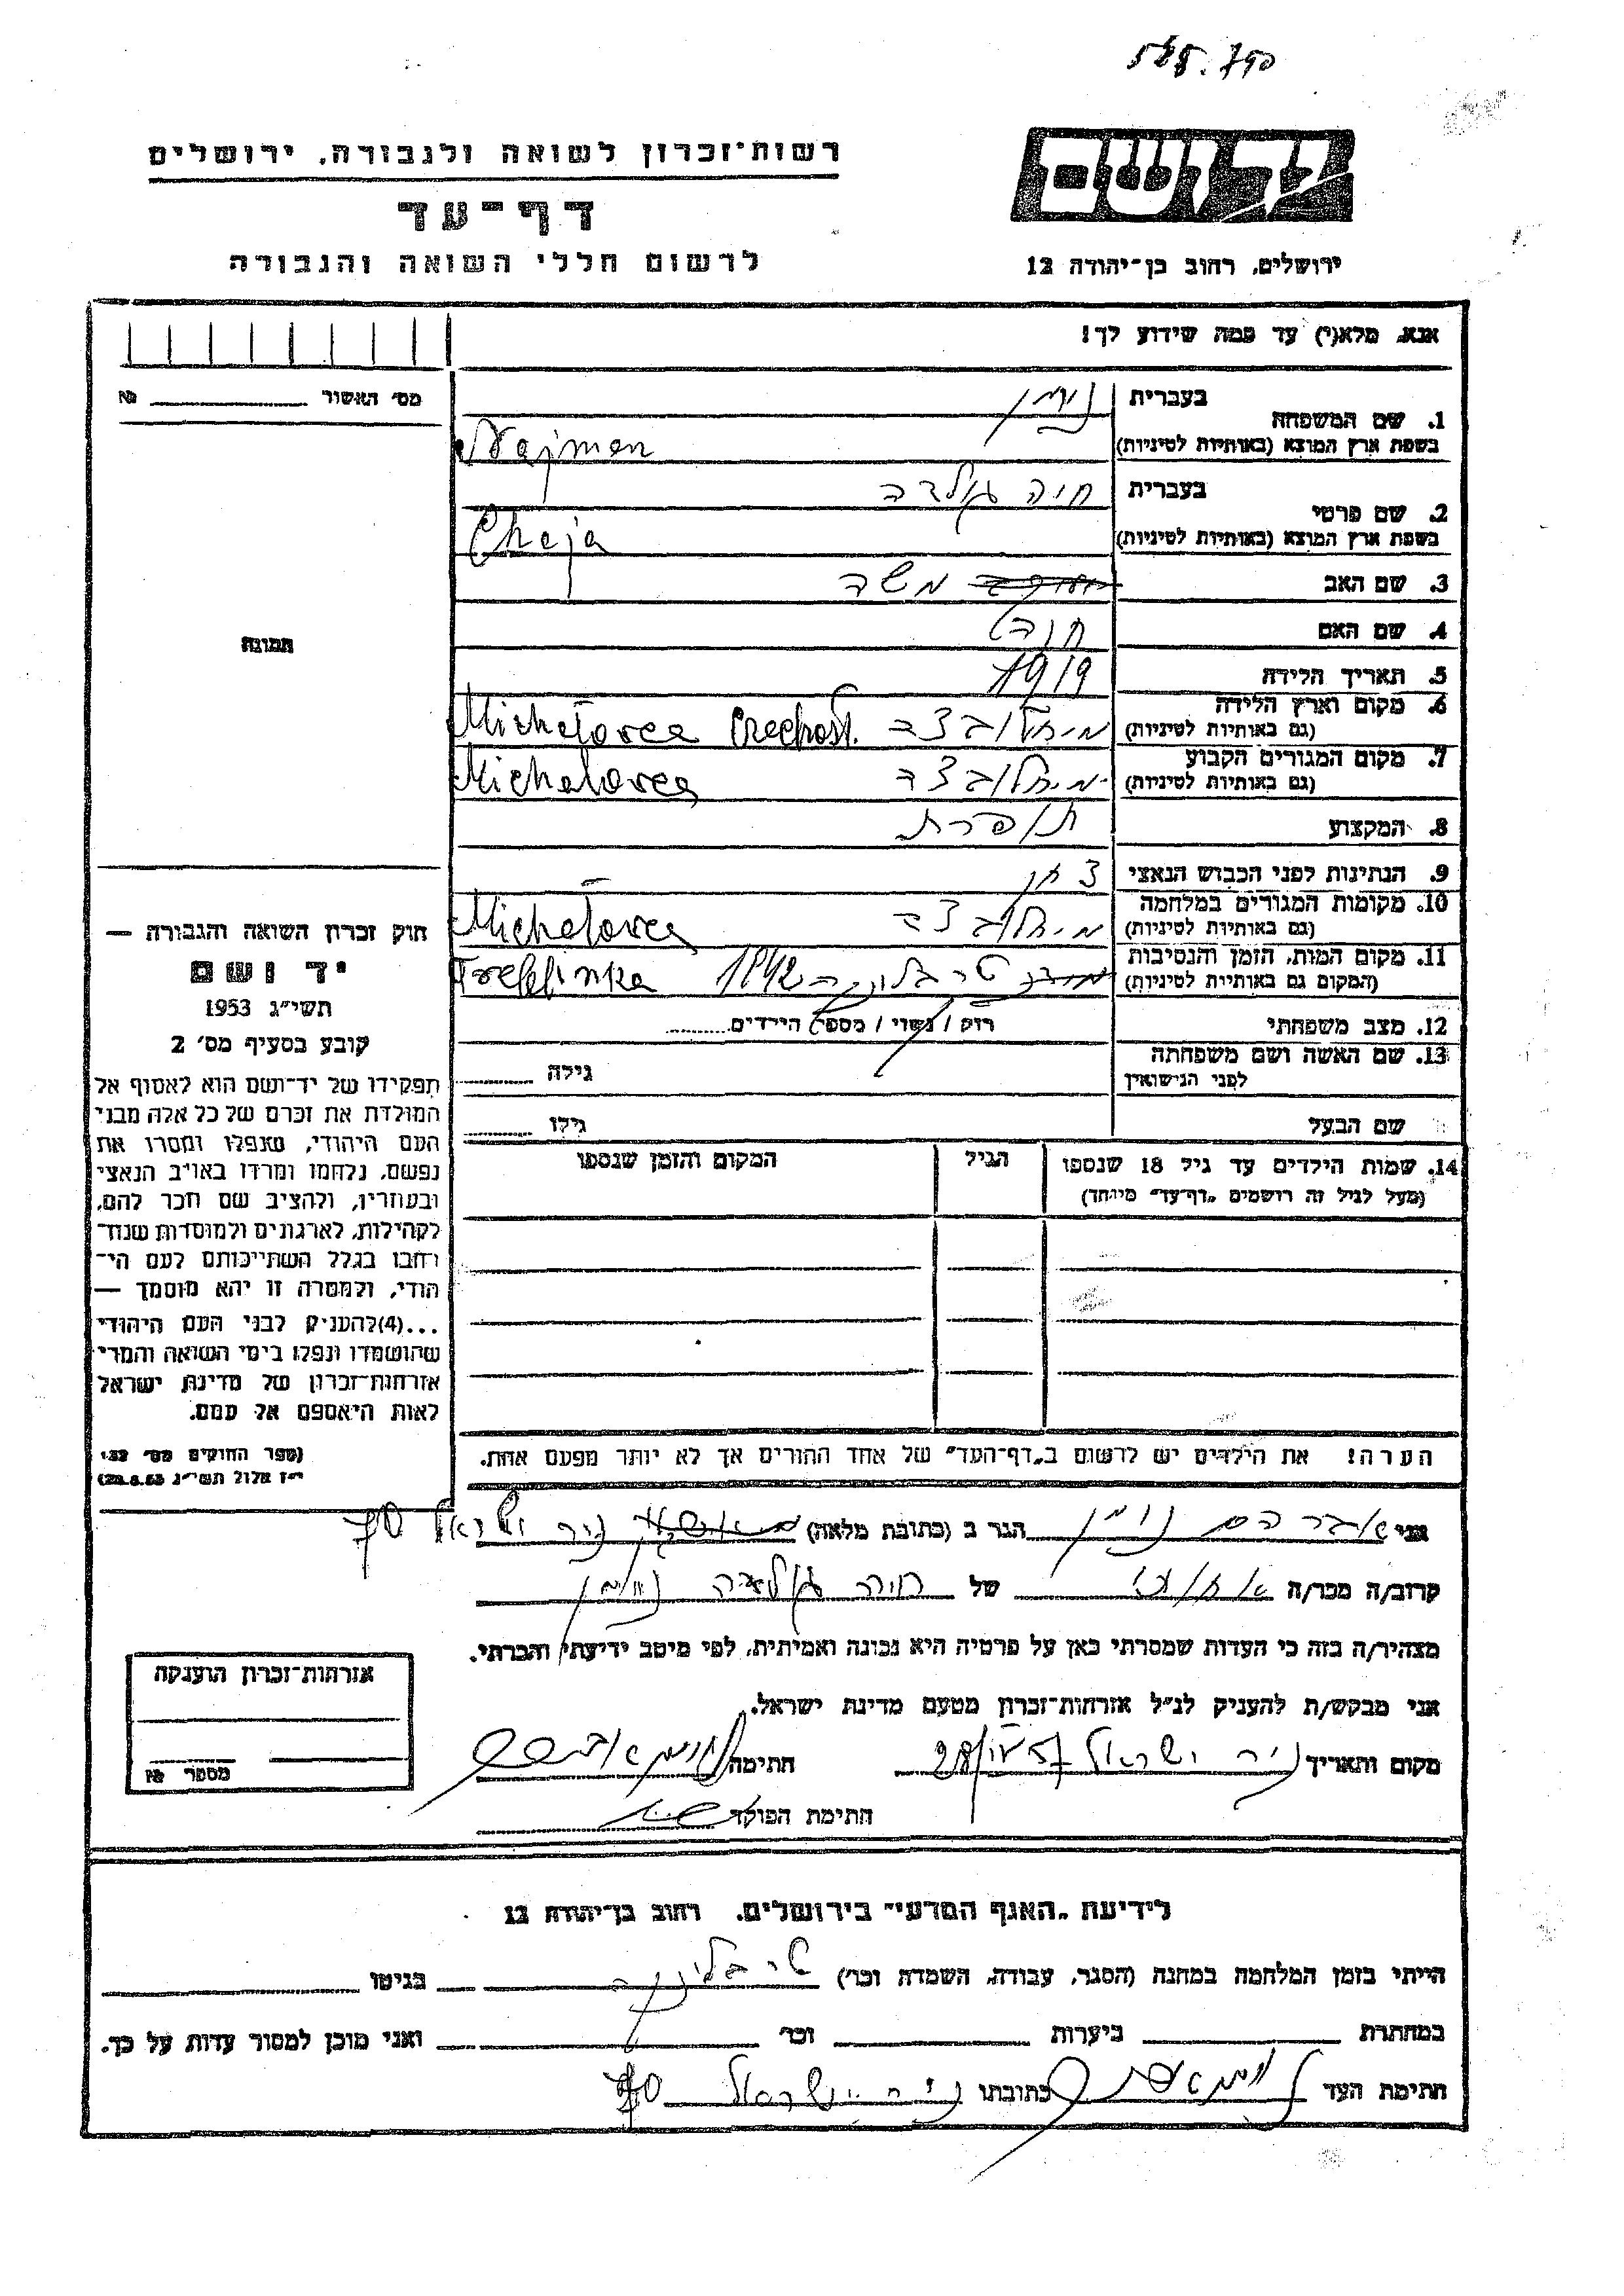 רשות־זכרון לשואה ולגבורה, ירושלים
דף־עד
לרשום חללי השואה והגבורה
ידושם
ירושלים, רחוב בן־יהודה 12
אנא, מלא(י) עד כמה שידוע לך!
מס׳ האשור № 
1. שם המשפחה
בעברית נוימן
בשפת ארץ המוצא (באותיות לטיניות) Najman
2. שם פרטי
בעברית חיה גולדה
בשפת ארץ המוצא (באותיות לטיניות) Chaja
3. שם האב משה
4. שם האם חנה
5. תאריך הלידה 1919
6. מקום וארץ הלידה
(גם באותיות לטיניות) מיחלובצה Michalovca Czechosl.
7. מקום המגורים הקבוע
(גם באותיות לטיניות) מיחלובצה Michalovca
8. המקצוע תופרת
9. הנתינות לפני הכבוש הנאצי
10. מקומות המגורים במלחמה
(גם באותיות לטיניות) מיחלובצה Michalovca
11. מקום המות, הזמן והנסיבות
(המקום גם באותיות לטיניות) טרבלינקה 1942 Trebblinka
12. מצב משפחתי רווק / נשוי / מספר הילדים
13. שם האשה ושם משפחתה
לפני הנישואין גילה
שם הבעל גילו
14. שמות הילדים עד גיל 18 שנספו הגיל המקום והזמן שנספו
(מעל לגיל זה רושמים „דף־עד״ מיוחד)
הערה! את הילדים יש לרשום ב„דף־העד״ של אחד ההורים אך לא יותר מפעם אחת.
תמונה
חוק זכרון השואה והגבורה —
יד ושם
תשי״ג 1953
קובע בסעיף מס׳ 2
תפקידו של יד־ושם הוא לאסוף אל
המולדת את זכרם של כל אלה מבני
העם היהודי, שנפלו ומסרו את
נפשם, נלחמו ומרדו באויב הנאצי
ובעוזריו, ולהציב שם וזכר להם,
לקהילות, לארגונים ולמוסדות שנח־
רבו בגלל השתייכותם לעם הי־
הודי, ולמטרה זו יהא מוסמך —
...(4) להעניק לבני העם היהודי
שהושמדו ונפלו בימי השואה והמרי
אזרחות־זכרון של מדינת ישראל
לאות היאספם אל עמם.
(ספר החוקים מס׳ 132,
י״ז אלול תשי״ג 28.8.53)
אני אברהם נוימן הגר ב (כתובת מלאה) ניר ישראל 70
קרוב/ה מכר/ה אחותי של חיה גולדה נוימן
מצהיר/ה בזה כי העדות שמסרתי כאן על פרטיה היא נכונה ואמיתית, לפי מיטב ידיעתי והכרתי.
אני מבקש/ת להעניק לנ״ל אזרחות־זכרון מטעם מדינת ישראל.
מקום ותאריך ניר ישראל 28/IV 57 חתימה
חתימת הפוקד
אזרחות־זכרון הוענקה
מספר №
לידיעת „האגף המדעי״ בירושלים, רחוב בן־יהודה 12
הייתי בזמן המלחמה במחנה (הסגר, עבודה, השמדה וכו׳) טרבלינקה בגיטו
במחתרת ביערות וכו׳ ואני מוכן למסור עדות על כך.
חתימת העד כתובתו ניר ישראל 70